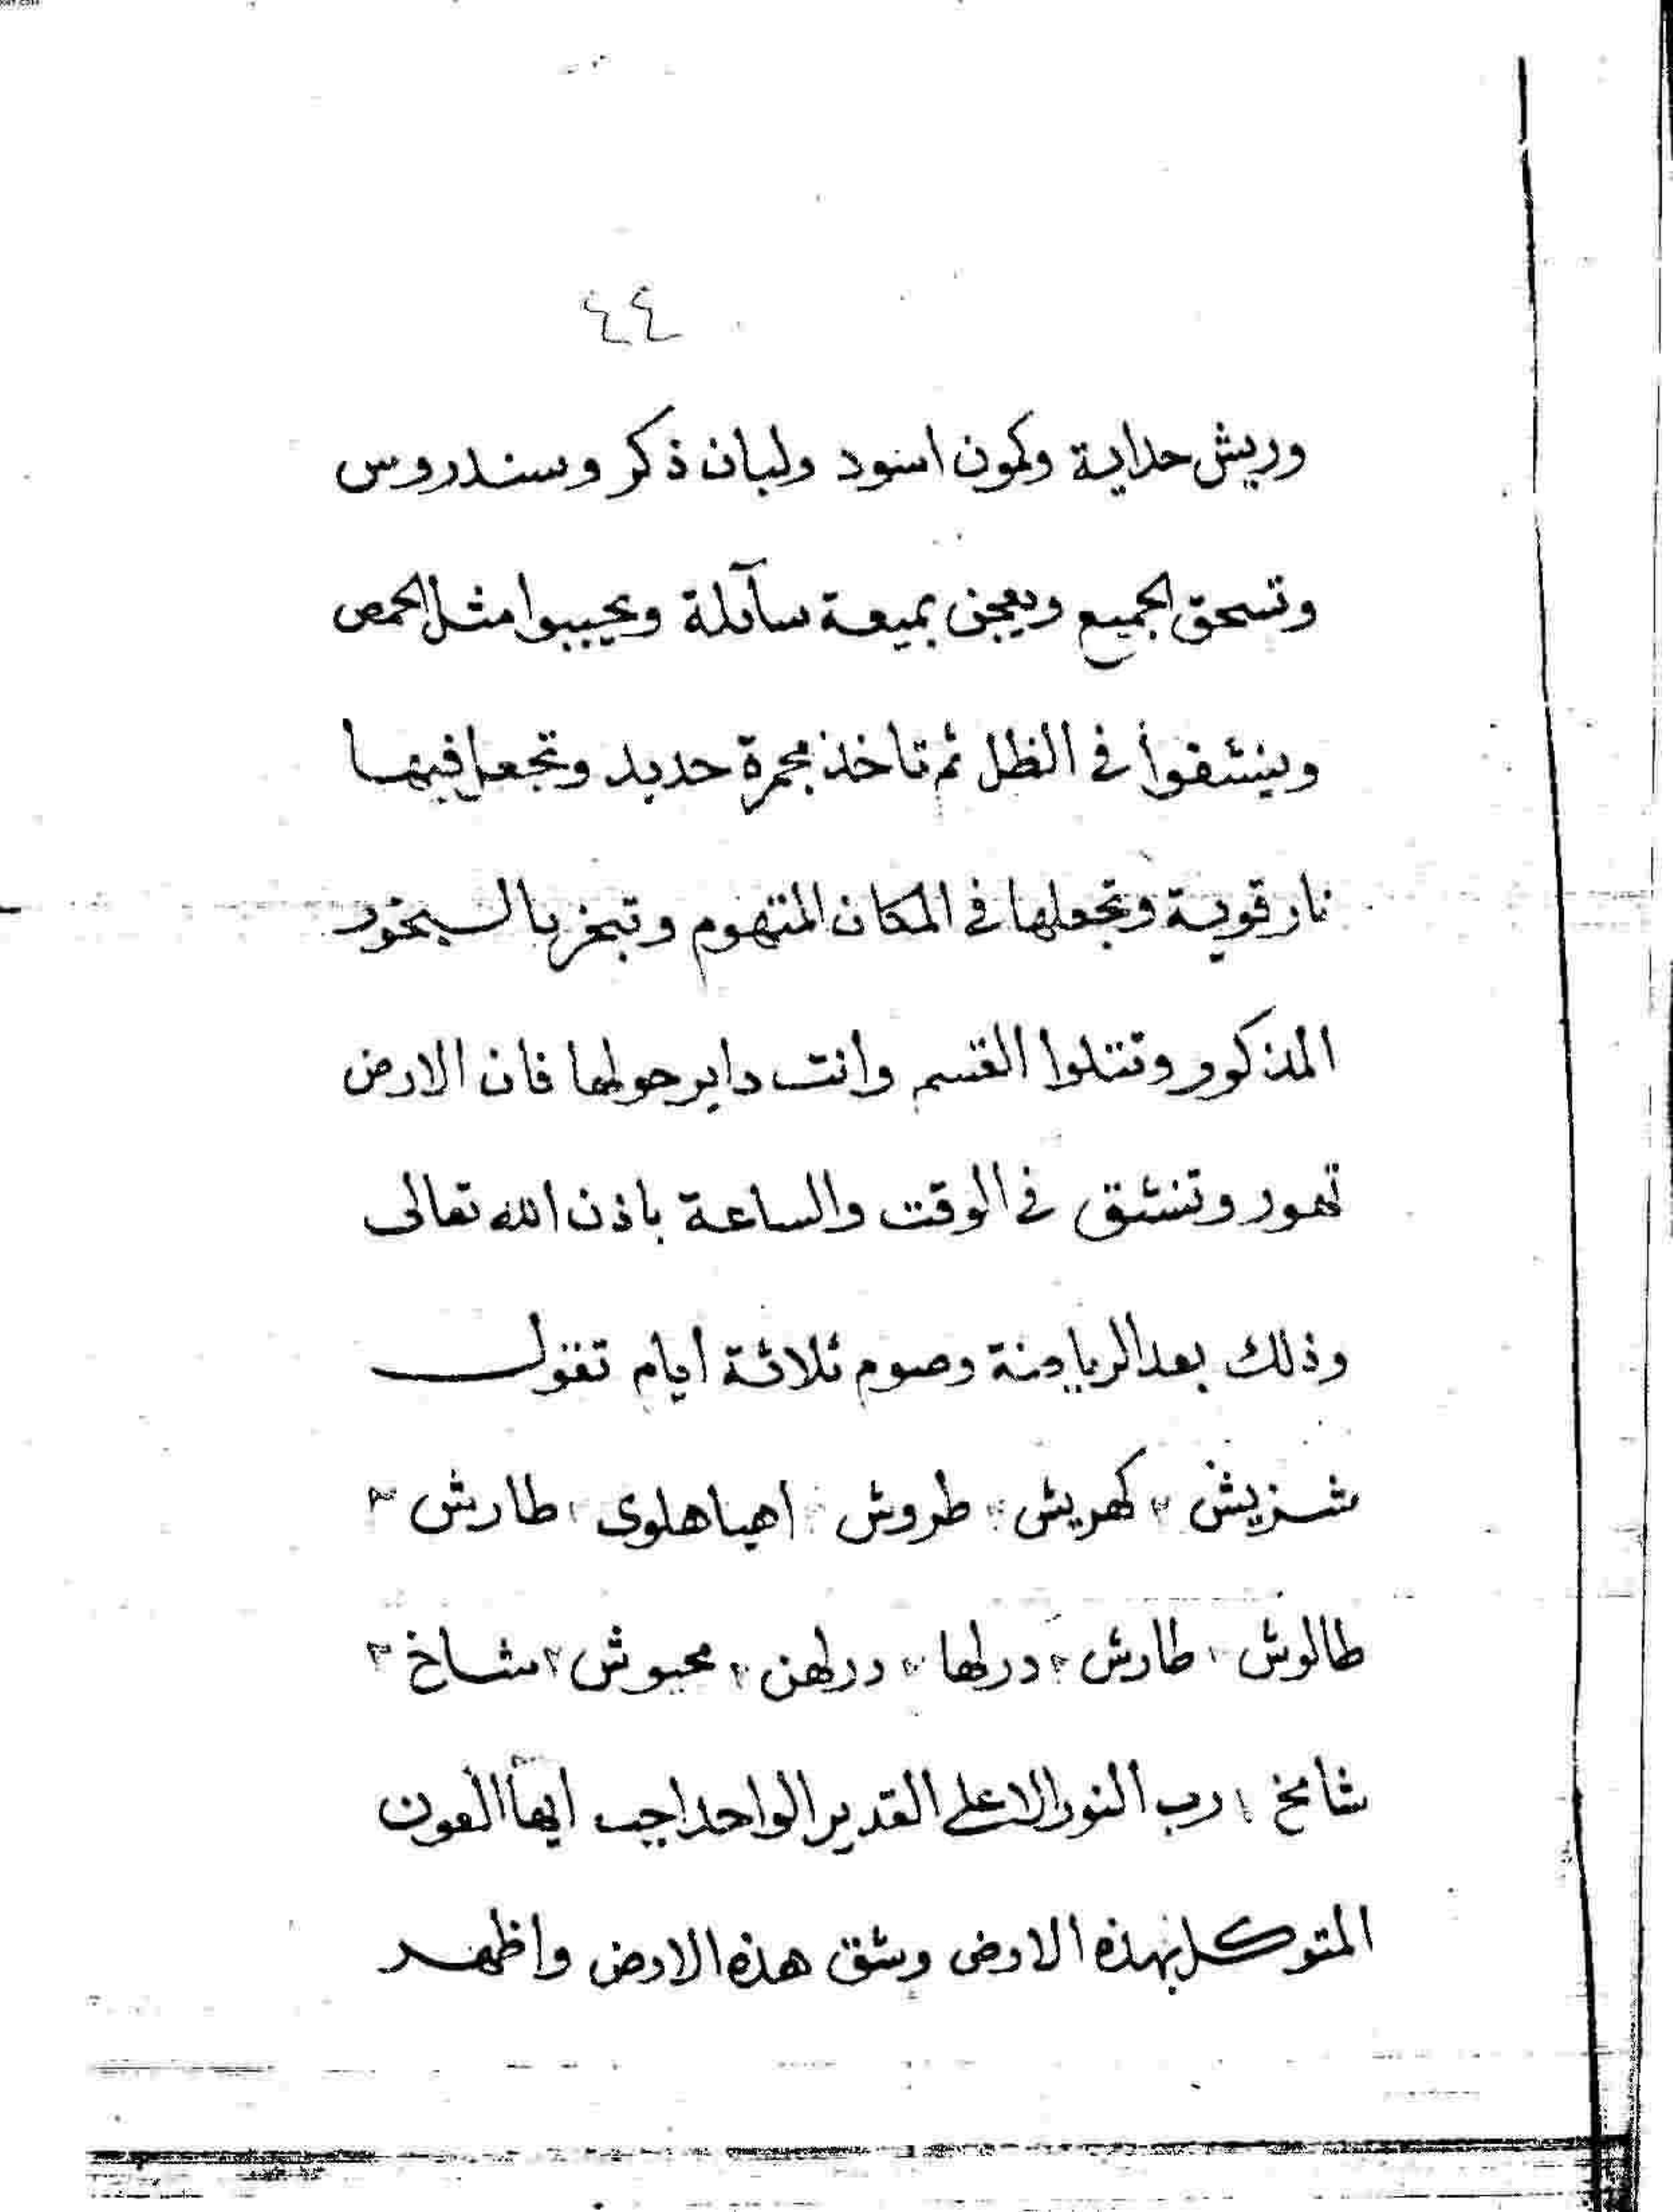 ٤٤
وريش حداية وكمون اسود ولبان ذكر وسندروس
وتسحق الجميع ويعجن بميعة سآئلة ويحببوا مثل الحمص
وينشفوا في الظل ثم تاخذ مجمرة حديد وتجعل فيها
نار قوية وتجعلها في المكان المتهوم وتبخر بالبخور
المذكور وتتلوا القسم وانت داير حولها فان الارض
تهور وتنشق في الوقت والساعة باذن الله تعالى
وذلك بعد الرياضة وصوم ثلاثة ايام تقول
شزيش كهريش طروش اهيا هلوى طارش
طالوش طارش درلها درلهن محبوش مشاخ
شامخ رب النور الاعلى القدير الواحد اجب ايها العون
المتوكل بهذه الارض وشق هذه الارض واظهر